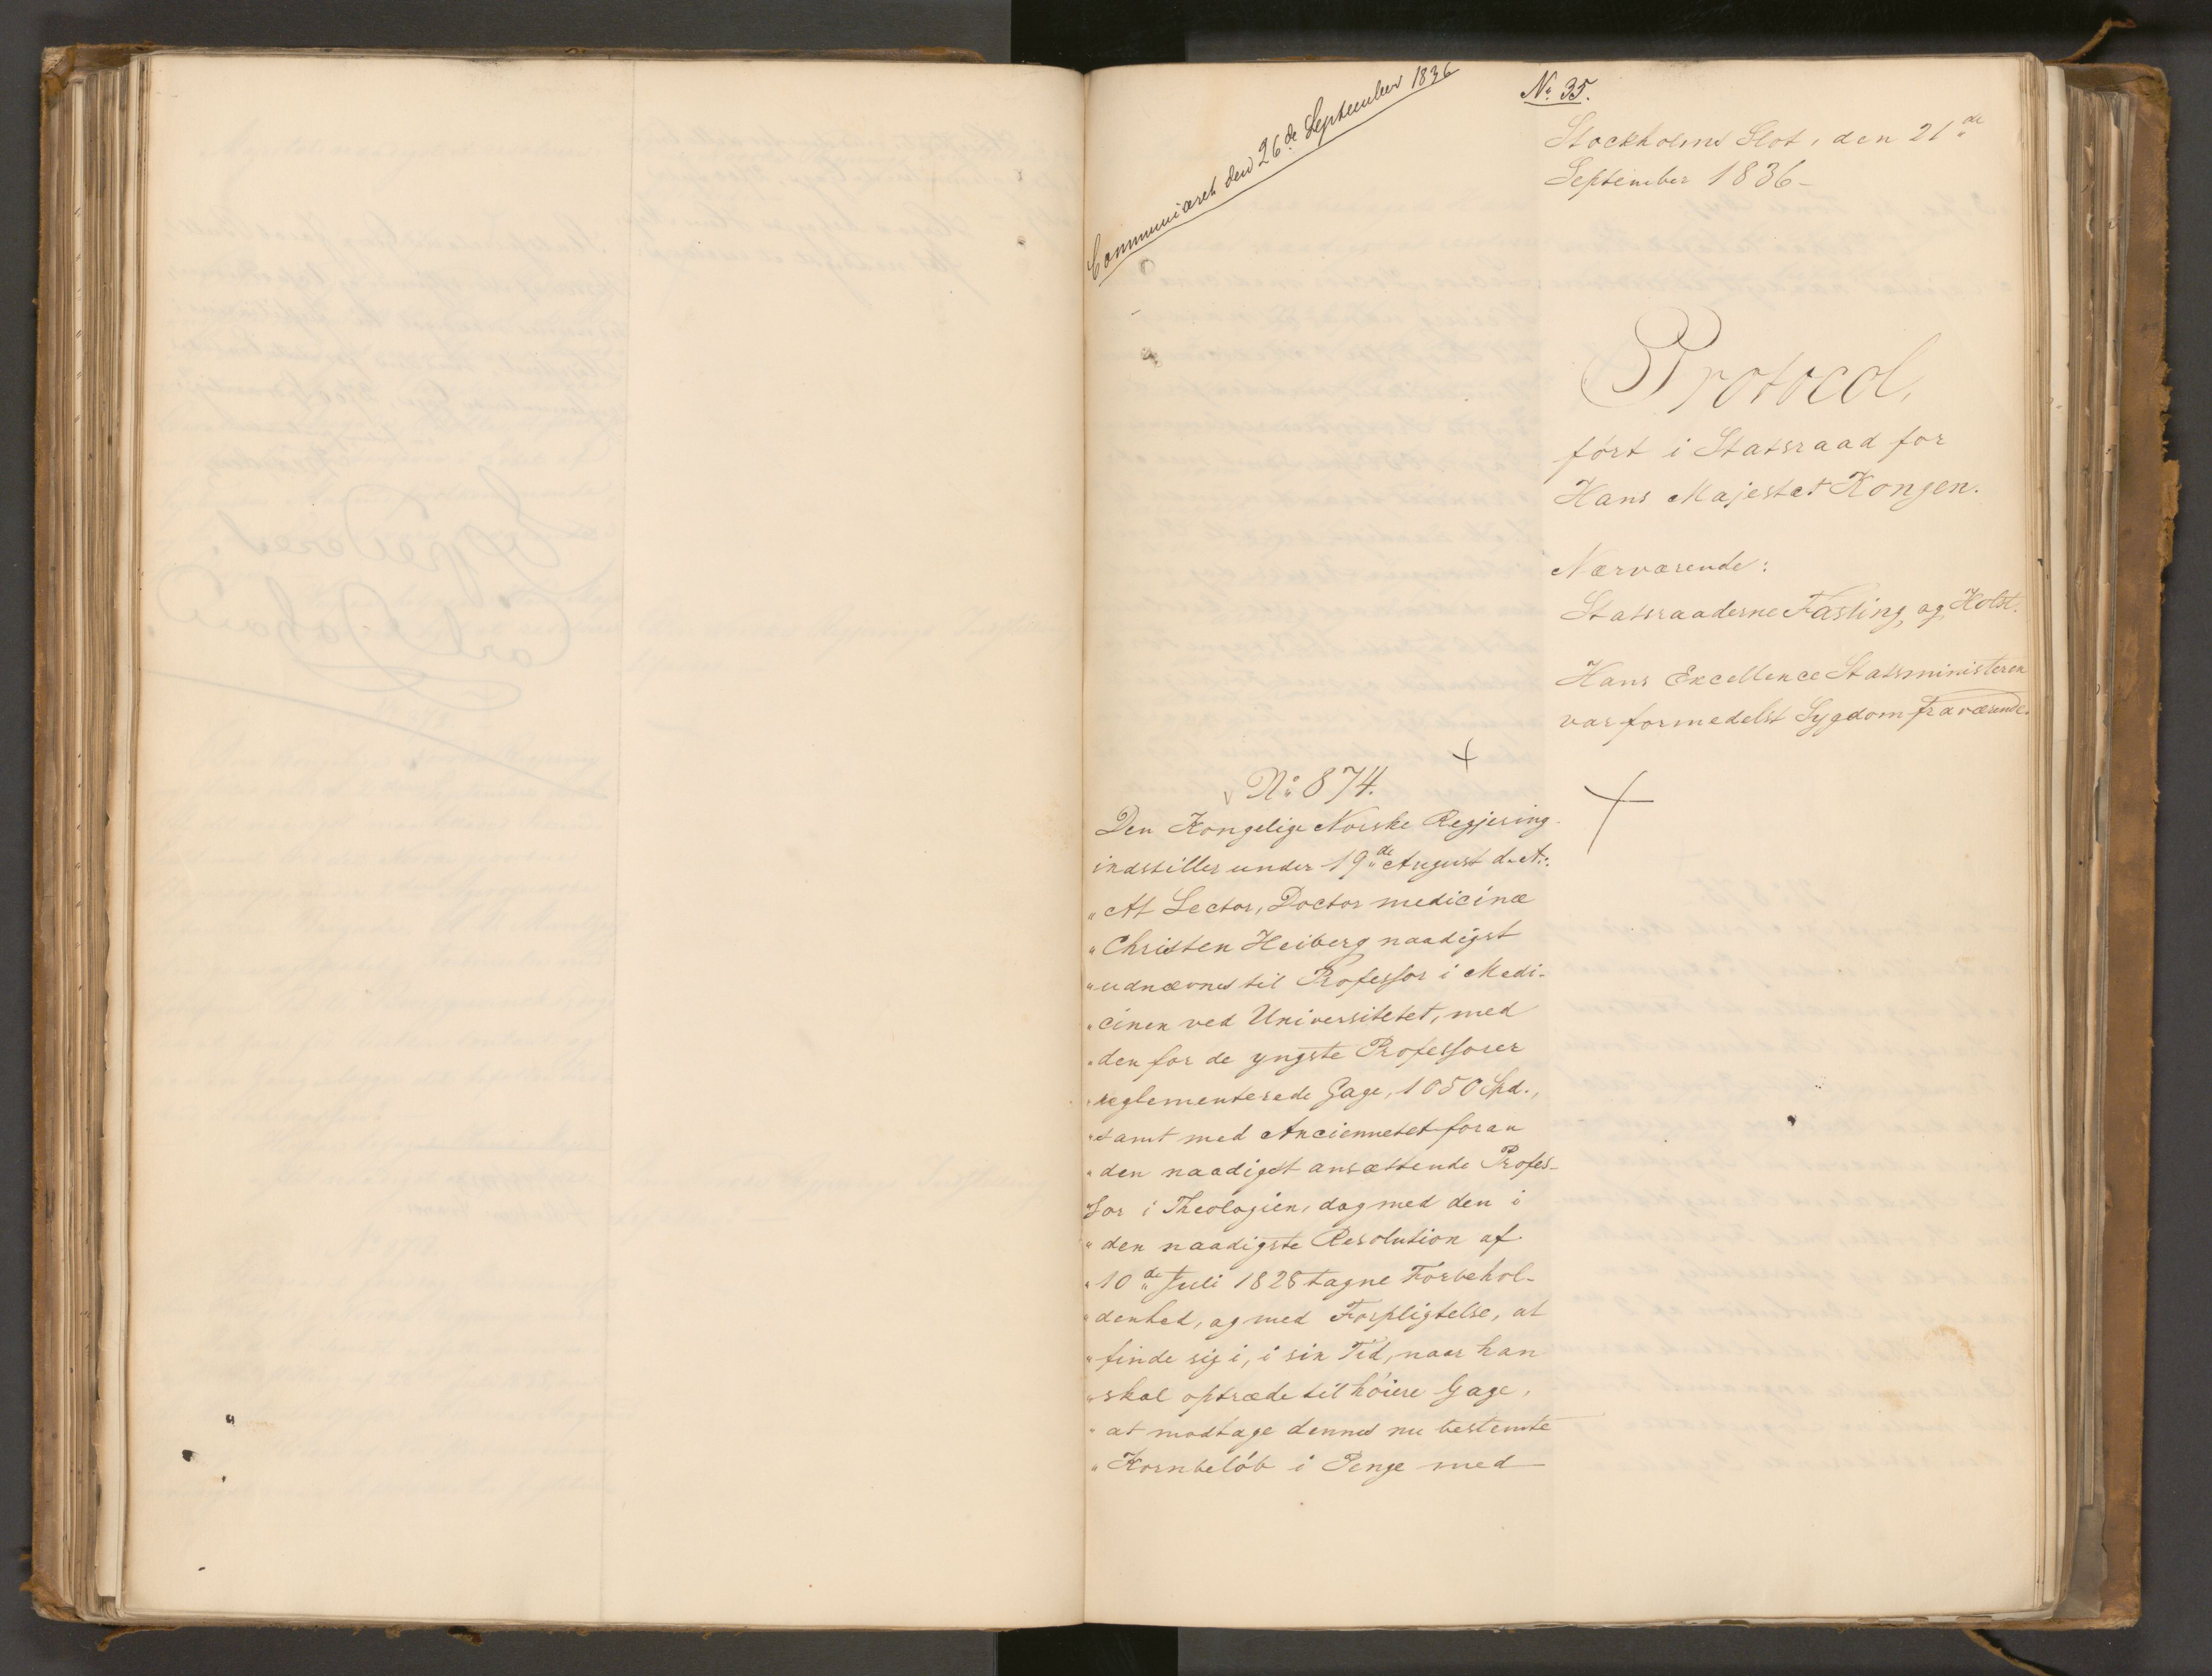 Communiceret den 26de September 1836
No 35.
Stockholms Slot, den 21de
September 1836 -
Protocol,
ført i Statsraad for
Hans Majestæt Kongen.
Nærværende:
Statsraaderne Fasting og Holst.
Hans Excellence Statsministeren
var formedelst Sygdom fraværende.
No 874.
Den Kongelige Norske Regjering
indstiller under 19de August d. A.:
"At Lector, Doctor medicinæ
"Christen Heiberg naadigst
"udnævnes til Professor i Medi-
"cinen ved Universitetet, med
"den for de yngste Professorer
"reglementerede Gage, 1050 Spd.,
"samt med Anciennetet foran
"den naadigst ansættende Profes-
"sor i Theologien, dog med den i
"den naadigste Resolution af
"10de Juli 1828 tagne Forbehol-
"denhed, og med Forpligtelse, at
"finde sig i, i sin Tid, naar han
"skal optræde til høiere Gage,
"at modtage dennes nu bestemte
"Kornbeløb i Penge med